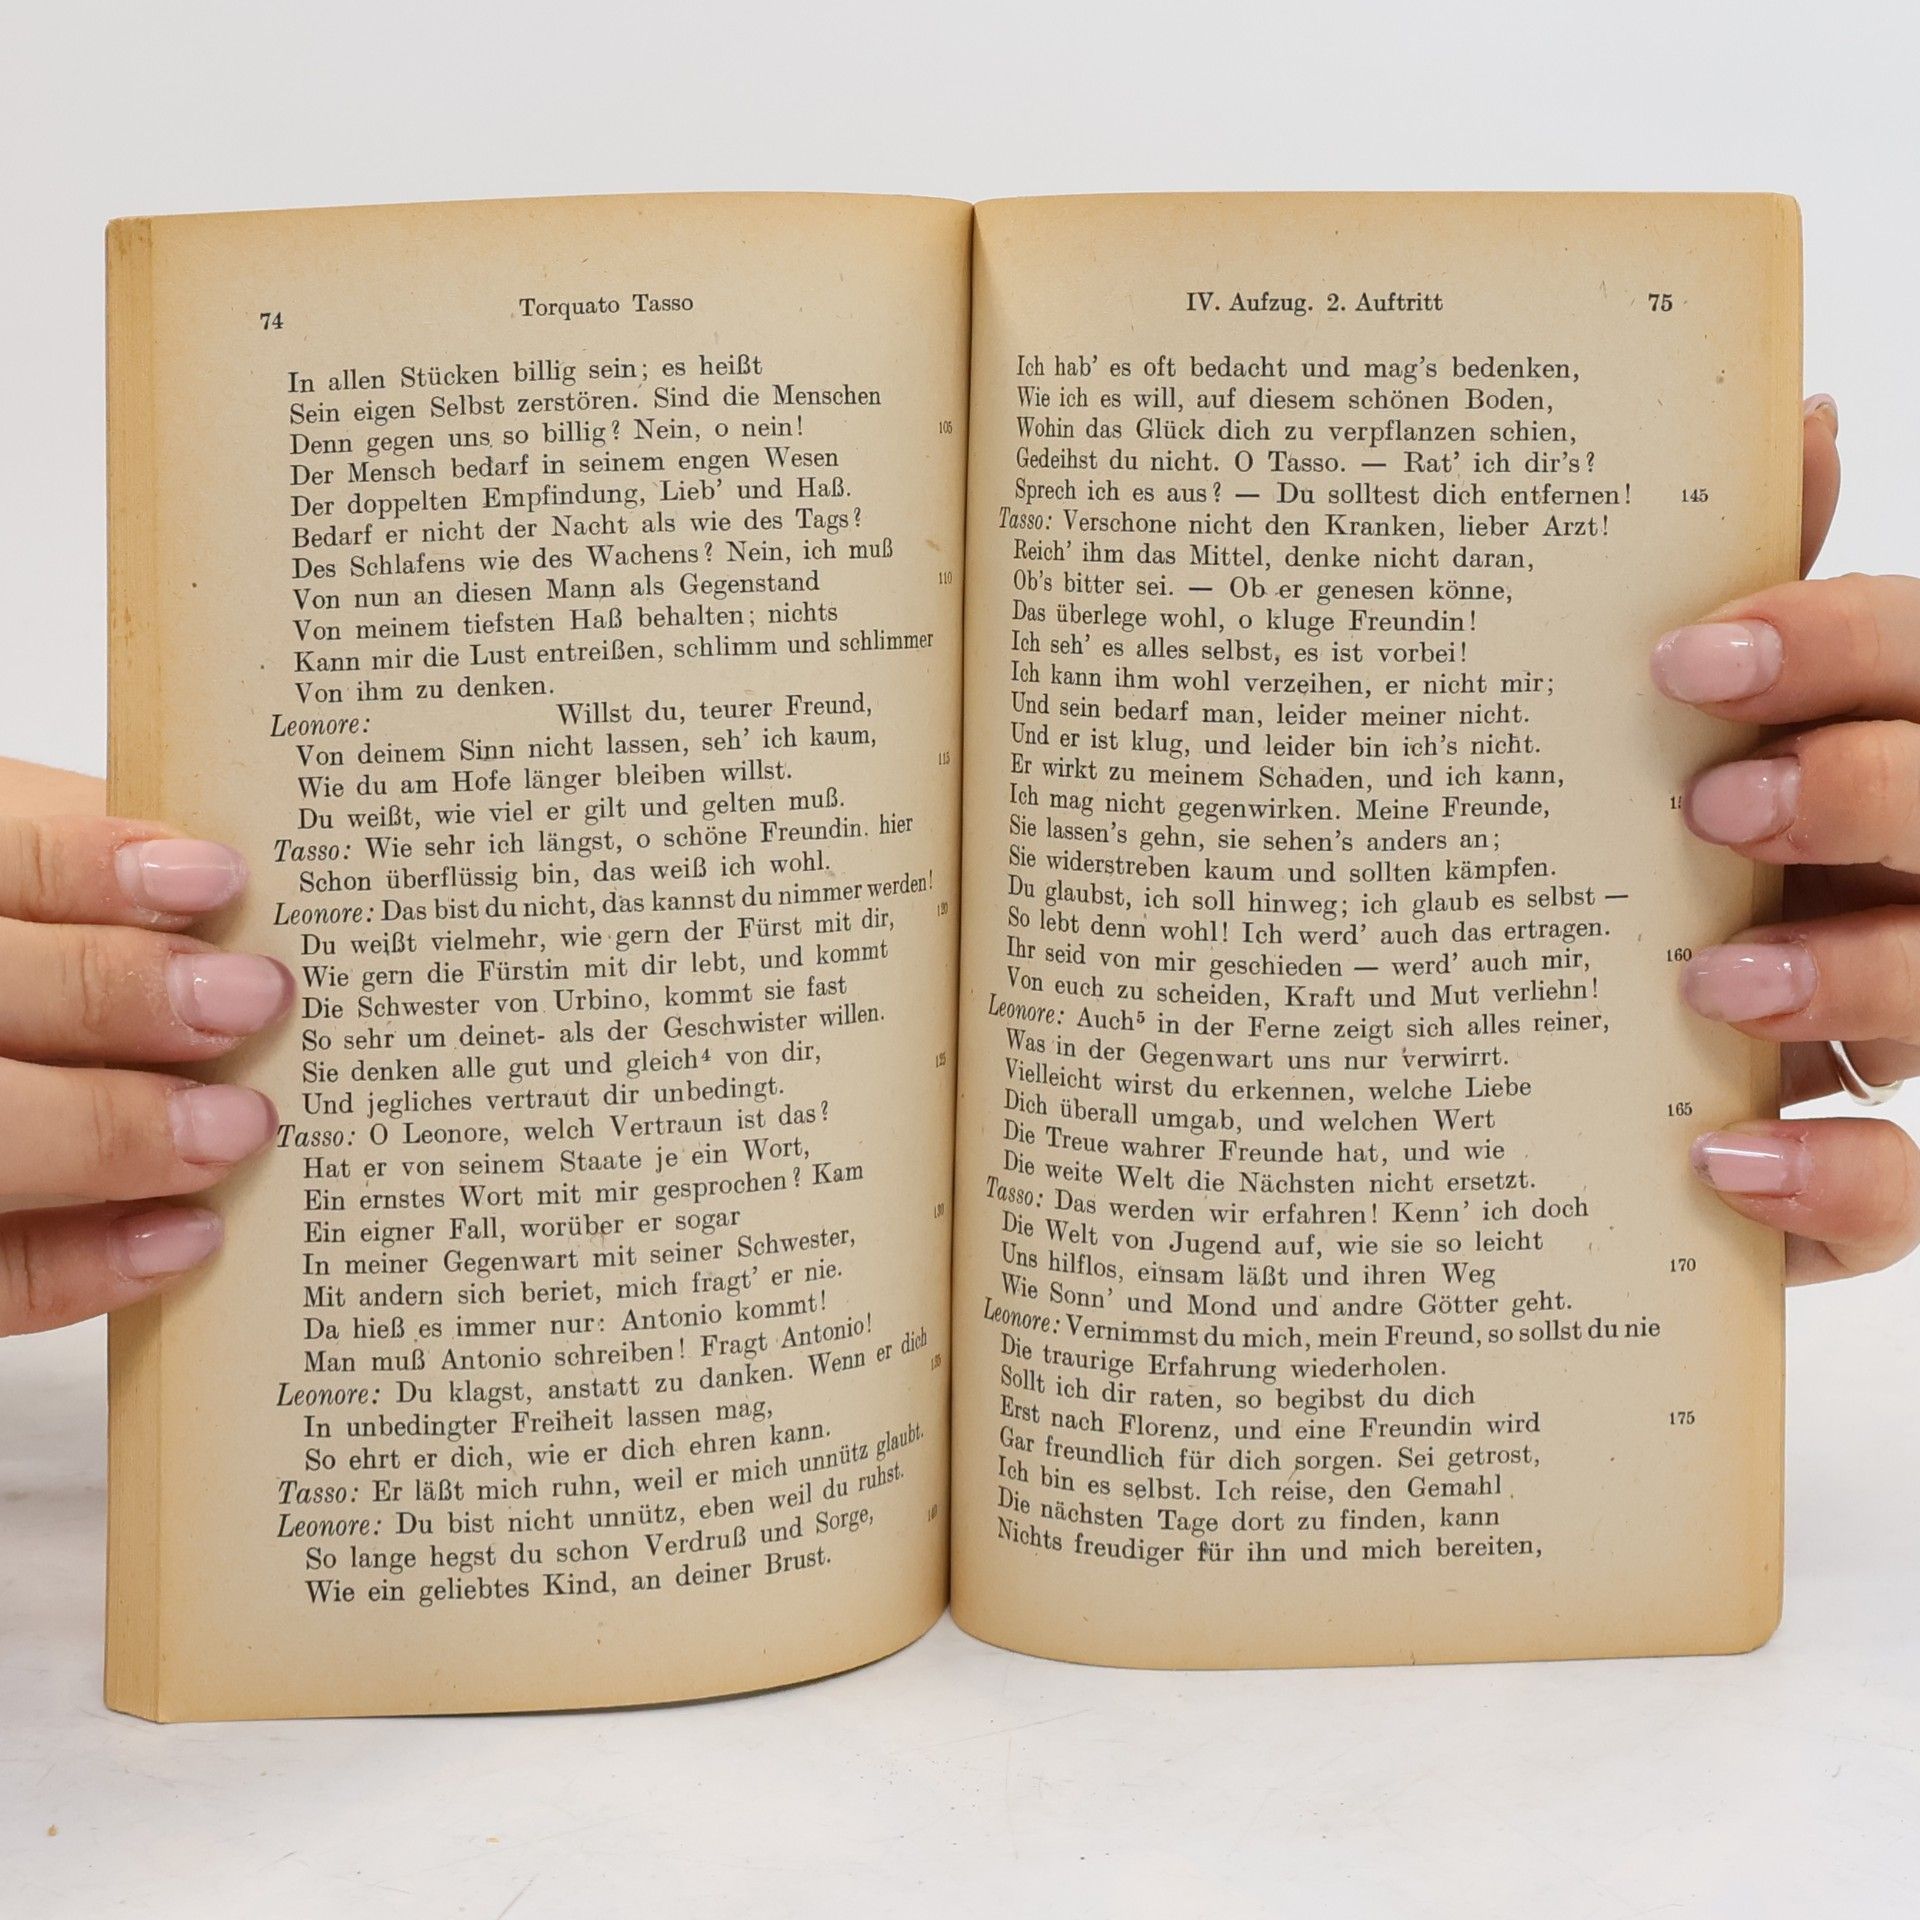 74
Torquato Tasso
In allen Stücken billig sein; es heißt
Sein eigen Selbst zerstören. Sind die Menschen
Denn gegen uns so billig? Nein, o nein! 105
Der Mensch bedarf in seinem engen Wesen
Der doppelten Empfindung, Lieb’ und Haß.
Bedarf er nicht der Nacht als wie des Tags?
Des Schlafens wie des Wachens? Nein, ich muß
Von nun an diesen Mann als Gegenstand 110
Von meinem tiefsten Haß behalten; nichts
Kann mir die Lust entreißen, schlimm und schlimmer
Von ihm zu denken.
Leonore: Willst du, teurer Freund,
Von deinem Sinn nicht lassen, seh’ ich kaum, 115
Wie du am Hofe länger bleiben willst.
Du weißt, wie viel er gilt und gelten muß.
Tasso: Wie sehr ich längst, o schöne Freundin. hier
Schon überflüssig bin, das weiß ich wohl.
Leonore: Das bist du nicht, das kannst du nimmer werden! 120
Du weißt vielmehr, wie gern der Fürst mit dir,
Wie gern die Fürstin mit dir lebt, und kommt
Die Schwester von Urbino, kommt sie fast
So sehr um deinet- als der Geschwister willen.
Sie denken alle gut und gleich⁴ von dir, 125
Und jegliches vertraut dir unbedingt.
Tasso: O Leonore, welch Vertraun ist das?
Hat er von seinem Staate je ein Wort,
Ein ernstes Wort mit mir gesprochen? Kam
Ein eigner Fall, worüber er sogar 130
In meiner Gegenwart mit seiner Schwester,
Mit andern sich beriet, mich fragt’ er nie.
Da hieß es immer nur: Antonio kommt!
Man muß Antonio schreiben! Fragt Antonio!
Leonore: Du klagst, anstatt zu danken. Wenn er dich 135
In unbedingter Freiheit lassen mag,
So ehrt er dich, wie er dich ehren kann.
Tasso: Er läßt mich ruhn, weil er mich unnütz glaubt.
Leonore: Du bist nicht unnütz, eben weil du ruhst.
So lange hegst du schon Verdruß und Sorge, 140
Wie ein geliebtes Kind, an deiner Brust.
IV. Aufzug. 2. Auftritt
75
Ich hab’ es oft bedacht und mag’s bedenken,
Wie ich es will, auf diesem schönen Boden,
Wohin das Glück dich zu verpflanzen schien,
Gedeihst du nicht. O Tasso. — Rat’ ich dir’s?
Sprech ich es aus? — Du solltest dich entfernen! 145
Tasso: Verschone nicht den Kranken, lieber Arzt!
Reich’ ihm das Mittel, denke nicht daran,
Ob’s bitter sei. — Ob er genesen könne,
Das überlege wohl, o kluge Freundin!
Ich seh’ es alles selbst, es ist vorbei!
Ich kann ihm wohl verzeihen, er nicht mir;
Und sein bedarf man, leider meiner nicht.
Und er ist klug, und leider bin ich’s nicht.
Er wirkt zu meinem Schaden, und ich kann,
Ich mag nicht gegenwirken. Meine Freunde,
Sie lassen’s gehn, sie sehen’s anders an;
Sie widerstreben kaum und sollten kämpfen.
Du glaubst, ich soll hinweg; ich glaub es selbst —
So lebt denn wohl! Ich werd’ auch das ertragen.
Ihr seid von mir geschieden — werd’ auch mir, 160
Von euch zu scheiden, Kraft und Mut verliehn!
Leonore: Auch⁵ in der Ferne zeigt sich alles reiner,
Was in der Gegenwart uns nur verwirrt.
Vielleicht wirst du erkennen, welche Liebe
Dich überall umgab, und welchen Wert 165
Die Treue wahrer Freunde hat, und wie
Die weite Welt die Nächsten nicht ersetzt.
Tasso: Das werden wir erfahren! Kenn’ ich doch
Die Welt von Jugend auf, wie sie so leicht
Uns hilflos, einsam läßt und ihren Weg 170
Wie Sonn’ und Mond und andre Götter geht.
Leonore: Vernimmst du mich, mein Freund, so sollst du nie
Die traurige Erfahrung wiederholen.
Sollt ich dir raten, so begibst du dich
Erst nach Florenz, und eine Freundin wird 175
Gar freundlich für dich sorgen. Sei getrost,
Ich bin es selbst. Ich reise, den Gemahl
Die nächsten Tage dort zu finden, kann
Nichts freudiger für ihn und mich bereiten,